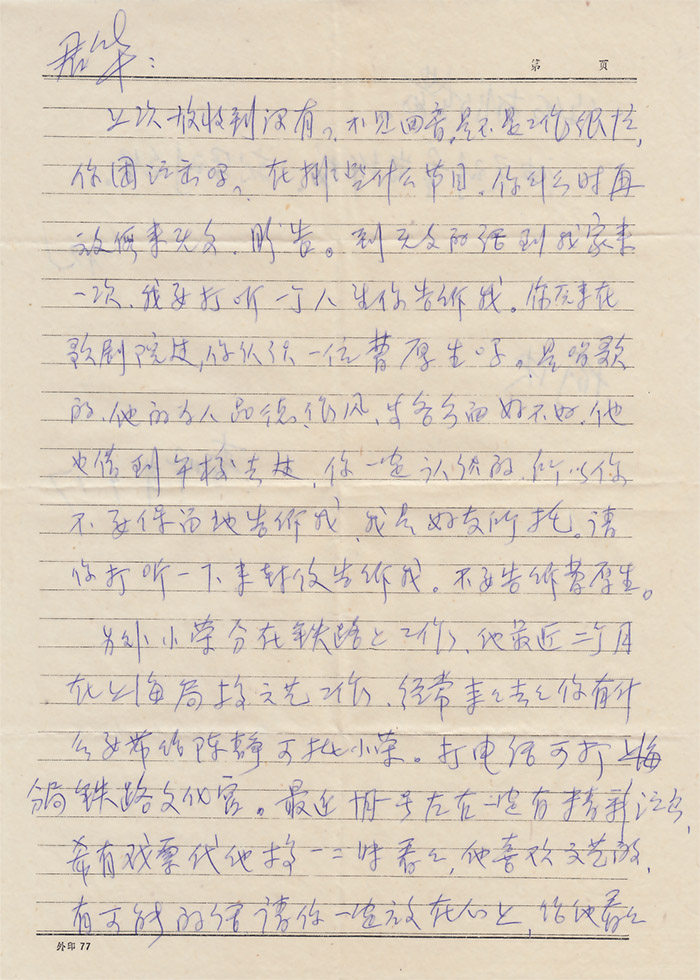 君华：
第 页
上次放收到没有，不见回音，是不是工作很忙，
你团演出吗，在排些什么节目，你什么时再
放假来无文，盼告。到无文的话到我家来
一次，我要打听一个人让你告诉我。你原来在
歌剧院过，你认识一位曹厚生吗，是唱歌
的，他的为人品德、作风、生各方面好不好，他
也借到午校去过，你一定认识的，所以你
不要保留地告诉我，我是好友所托。请
你打听一下来封信告诉我。不要告诉曹厚生。
另外小荣分在铁路上工作，他最近二个月
在上海局搞文艺工作，经常来来去去你有什
么要带给陈静可托小荣。打电话可打上海
分局铁路文化宫。最近 号左右一定有精彩演出，
希有戏票代他搞一二张看看，他喜欢文艺的，
有可能的话请你一定放在心上，给他看看
外印 77